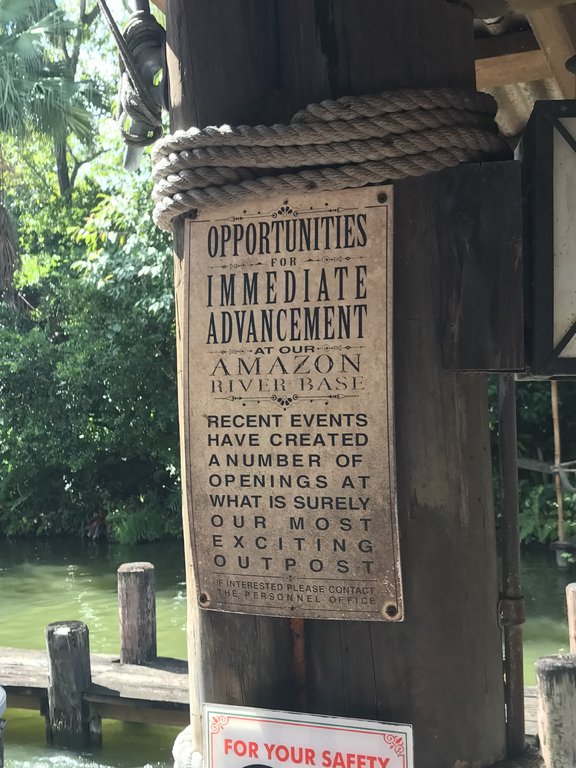 OPPORTUNITIES
FOR
IMMEDIATE
ADVANCEMENT
AT OUR
AMAZON
RIVER BASE
RECENT EVENTS
HAVE CREATED
A NUMBER OF
OPENINGS AT
WHAT IS SURELY
OUR MOST
EXCITING
OUTPOST
IF INTERESTED PLEASE CONTACT
THE PERSONNEL OFFICE
FOR YOUR SAFETY